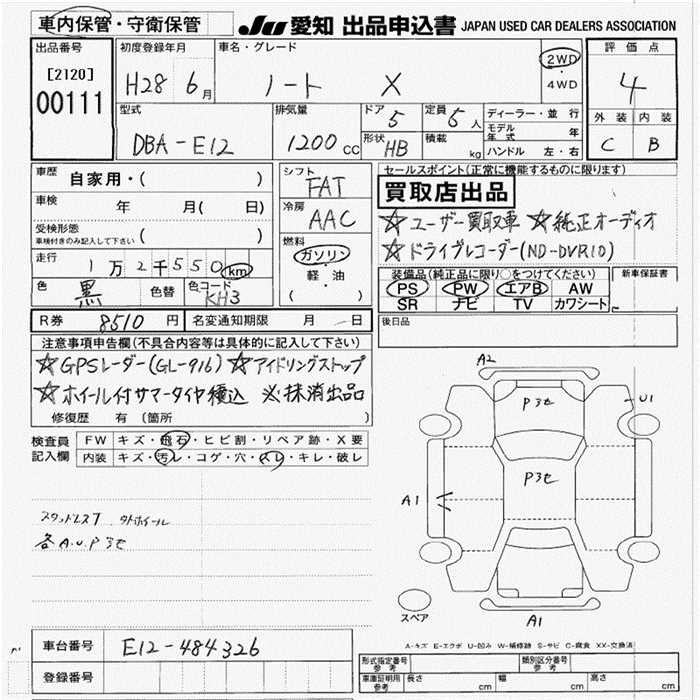 車内保管・守衛保管
JU 愛知 出品申込書 JAPAN USED CAR DEALERS ASSOCIATION
出品番号 初度登録年月 車名・グレード 評価点
[2120] 00111
H28 6月 ノート X
2WD・4WD
4
外装 内装
C B
型式 排気量 ドア 定員 ディーラー・並行
DBA-E12 1200cc 5 5人
モデル年式 年
形状 HB 積載 kg
ハンドル 左・右
車歴 自家用・( )
シフト FAT
セールスポイント(正常に機能するものに限ります)
買取店出品
☆ユーザー買取車 ☆純正オーディオ
☆ドライブレコーダー(ND-DVR10)
車検 年 月( 日)
冷房 AAC
受検形態
車検付きのみ記入して下さい ( )
燃料 ガソリン・軽・油 ( )
走行 1万2千550km
色 黒 色替 色コード KH3
装備品(純正品に限り○をつけてください) 新車保証書
PS PW エアB AW
SR ナビ TV カワシート
R券 8510円 名変通知期限 月 日
後日品
注意事項申告欄(不具合内容等は具体的に記入して下さい)
☆GPSレーダー(GL-916) ☆アイドリングストップ
☆ホイール付サマータイヤ積込 ※抹消出品
修復歴 有 (箇所 )
検査員記入欄
FW キズ・飛石・ヒビ割・リペア跡・X要
内装 キズ・汚レ・コゲ・穴・スレ・キレ・破レ
スタッドレスT 外ホイール
各A.U.Pでせ
A2
Pでせ
U1
Pでせ
A1
スペア
A1
A-キズ E-エクボ U-凹み W-補修跡 S-サビ C-腐食 XX-交換済
車台番号 E12-484326
登録番号
形式指定番号 参考 類別区分番号 参考
車庫証明用 参考 長さ cm 幅 cm 高さ cm